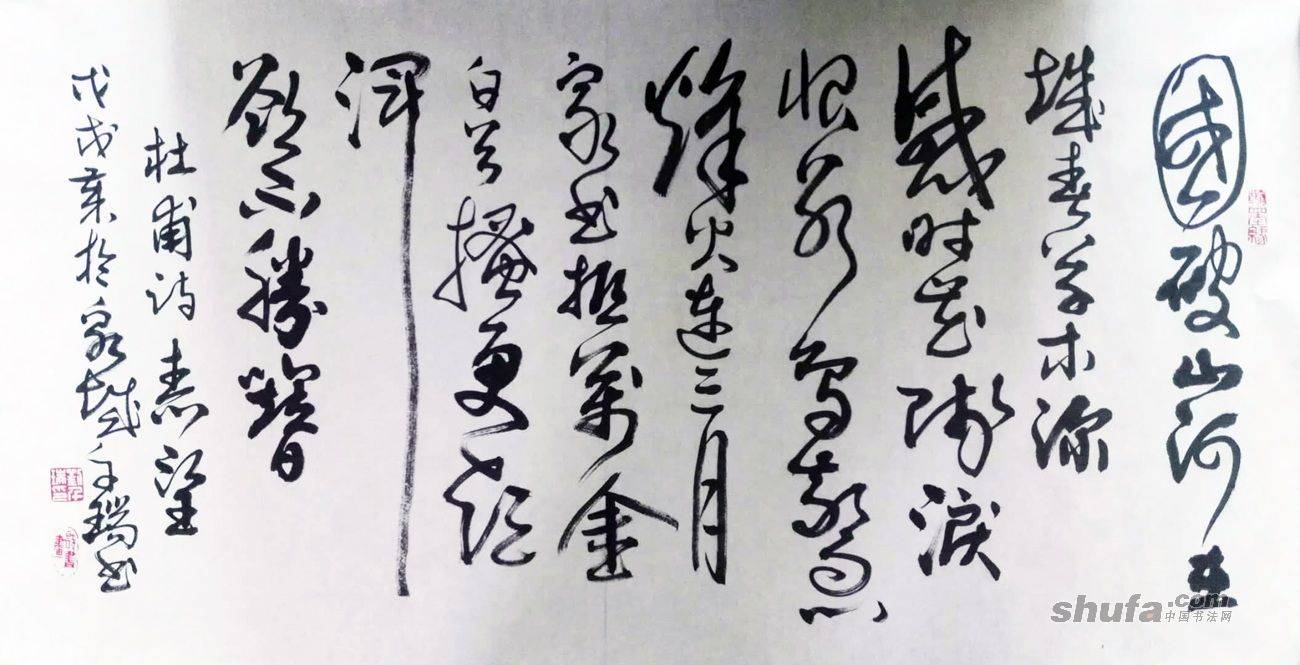 國破山河在
城春草木深
感时花溅淚
恨别鸟驚心
烽火连三月
家书抵萬金
白首搔更短
渾
欲不勝簪
杜甫诗春望
戊戌 於泉城子瑞书
shufa.com
中国书法网